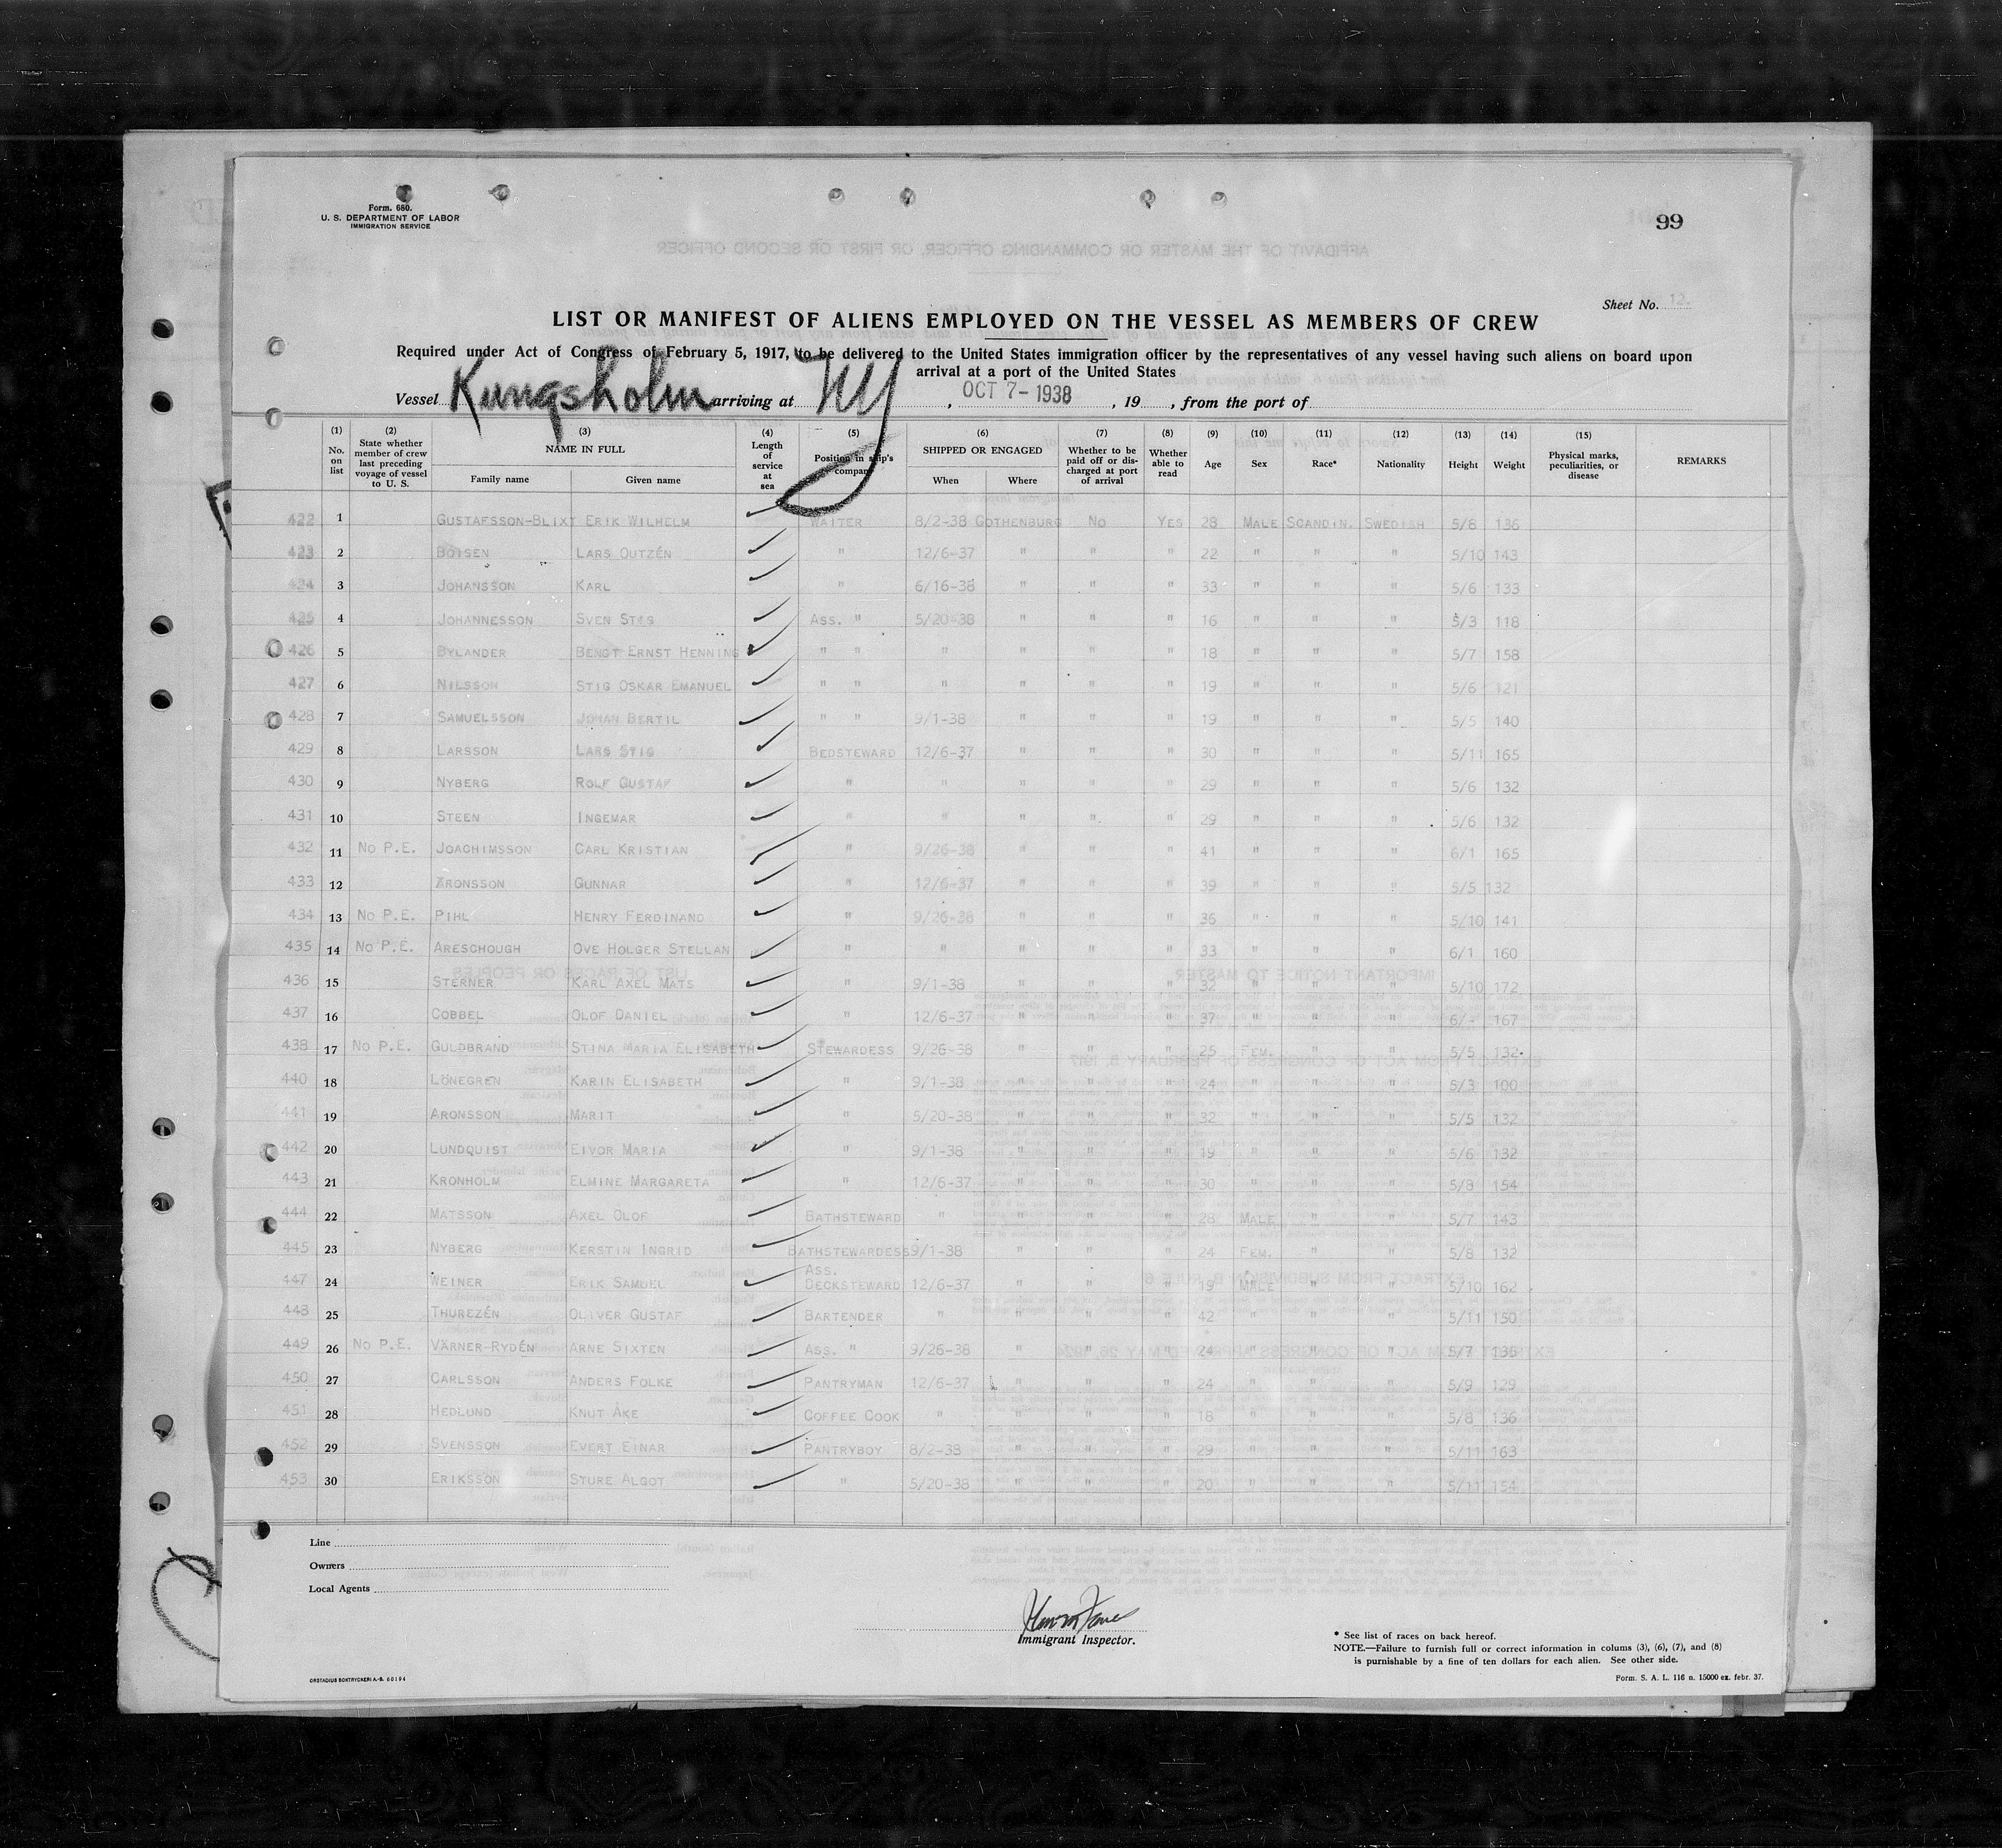 Form. 680.
U. S. DEPARTMENT OF LABOR
IMMIGRATION SERVICE
99
Sheet No. 12.
LIST OR MANIFEST OF ALIENS EMPLOYED ON THE VESSEL AS MEMBERS OF CREW
Required under Act of Congress of February 5, 1917, to be delivered to the United States immigration officer by the representatives of any vessel having such aliens on board upon
arrival at a port of the United States
Vessel Kungsholm arriving at NY, OCT 7-1938, 19, from the port of
(1) No. on list (2) State whether member of crew last preceding voyage of vessel to U. S. (3) NAME IN FULL Family name Given name (4) Length of service at sea (5) Position in ship's company (6) SHIPPED OR ENGAGED When Where (7) Whether to be paid off or discharged at port of arrival (8) Whether able to read (9) Age (10) Sex (11) Race* (12) Nationality (13) Height (14) Weight (15) Physical marks, peculiarities, or disease REMARKS
422 1 GUSTAFSSON-BLIXT ERIK WILHELM WAITER 8/2-38 GOTHENBURG NO YES 28 MALE SCANDIN. SWEDISH 5/8 136
423 2 BOISEN LARS OUTZÉN " 12/6-37 " " " 22 " " " 5/10 143
424 3 JOHANSSON KARL " 6/16-38 " " " 33 " " " 5/6 133
425 4 JOHANNESSON SVEN STIG ASS. " 5/20-38 " " " 16 " " " 5/3 118
426 5 BYLANDER BENGT ERNST HENNING " " " " " " 18 " " " 5/7 158
427 6 NILSSON STIG OSKAR EMANUEL " " " " " " 19 " " " 5/6 121
428 7 SAMUELSSON JOHAN BERTIL " " 9/1-38 " " " 19 " " " 5/5 140
429 8 LARSSON LARS STIG BEDSTEWARD 12/6-37 " " " 30 " " " 5/11 165
430 9 NYBERG ROLF GUSTAF " " " " " 29 " " " 5/6 132
431 10 STEEN INGEMAR " " " " " 29 " " " 5/6 132
432 11 NO P.E. JOACHIMSSON CARL KRISTIAN " 9/26-38 " " " 41 " " " 6/1 165
433 12 ARONSSON GUNNAR " 12/6-37 " " " 39 " " " 5/5 132
434 13 NO P.E. PIHL HENRY FERDINAND " 9/26-38 " " " 36 " " " 5/10 141
435 14 NO P.E. ARESCHOUGH OVE HOLGER STELLAN " " " " " 33 " " " 6/1 160
436 15 STERNER KARL AXEL MATS " 9/1-38 " " " 32 " " " 5/10 172
437 16 COBBEL OLOF DANIEL " 12/6-37 " " " 37 " " " 6/- 167
438 17 NO P.E. GULDBRAND STINA MARIA ELISABETH STEWARDESS 9/26-38 " " " 25 FEM. " " 5/5 132
440 18 LÖNEGREN KARIN ELISABETH " 9/1-38 " " " 24 " " " 5/3 100
441 19 ARONSSON MARIT " 5/20-38 " " " 32 " " " 5/5 132
442 20 LUNDQUIST EIVOR MARIA " 9/1-38 " " " 19 " " " 5/6 132
443 21 KRONHOLM ELMINE MARGARETA " 12/6-37 " " " 30 " " " 5/8 154
444 22 MATSSON AXEL OLOF BATHSTEWARD " " " " 28 MALE " " 5/7 143
445 23 NYBERG KERSTIN INGRID BATHSTEWARDESS 9/1-38 " " " 24 FEM. " " 5/8 132
447 24 WEINER ERIK SAMUEL ASS. DECKSTEWARD 12/6-37 " " " 19 MALE " " 5/10 162
448 25 THUREZÉN OLIVER GUSTAF BARTENDER " " " " 42 " " " 5/11 150
449 26 NO P.E. VÄRNER-RYDÉN ARNE SIXTEN ASS. " 9/26-38 " " " 24 " " " 5/7 136
450 27 CARLSSON ANDERS FOLKE PANTRYMAN 12/6-37 " " " 24 " " " 5/9 129
451 28 HEDLUND KNUT ÅKE COFFEE COOK " " " " 18 " " " 5/8 136
452 29 SVENSSON EVERT EINAR PANTRYBOY 8/2-38 " " " 29 " " " 5/11 163
453 30 ERIKSSON STURE ALGOT " 5/20-38 " " " 20 " " " 5/11 154
Line
Owners
Local Agents
Immigrant Inspector.
* See list of races on back hereof.
NOTE.—Failure to furnish full or correct information in colums (3), (6), (7), and (8)
is punishable by a fine of ten dollars for each alien. See other side.
ORSTADIUS BOKTRYCKERI A.-B. 60194
Form. S. A. L. 116 n. 15000 ex. febr. 37.